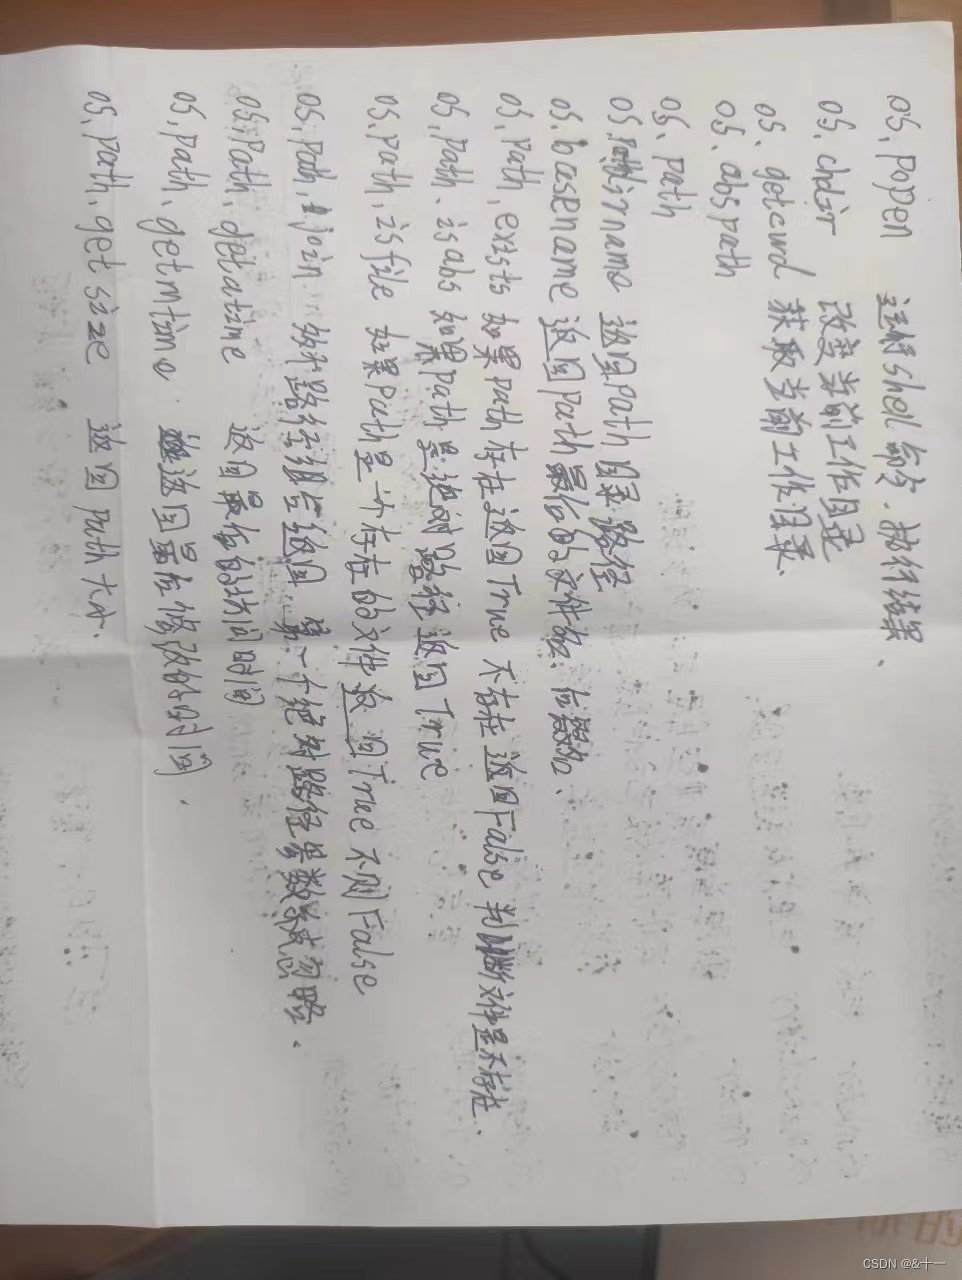 os.popen 运行shell命令.执行结果、
os.chdir 改变当前工作目录
os.getcwd 获取当前工作目录.
os.abspath
os.path
os.path dirname 返回path目录路径
os.basename 返回path最后的文件名.
os.path.exists 如果path存在返回True 不存在返回False 判断文件是不存在.
os.path.isabs 如果path是绝对路径返回True
os.path.isfile 如果path是一个存在的文件返回True 不则False
os.path.join 多个路径组合返回 第一个绝对路径参数忽略.
os.path.getatime 返回最后的访问时间
os.path.getmtime. 返回最后修改的时间.
os.path.getsize 返回path大小.
CSDN @&十一